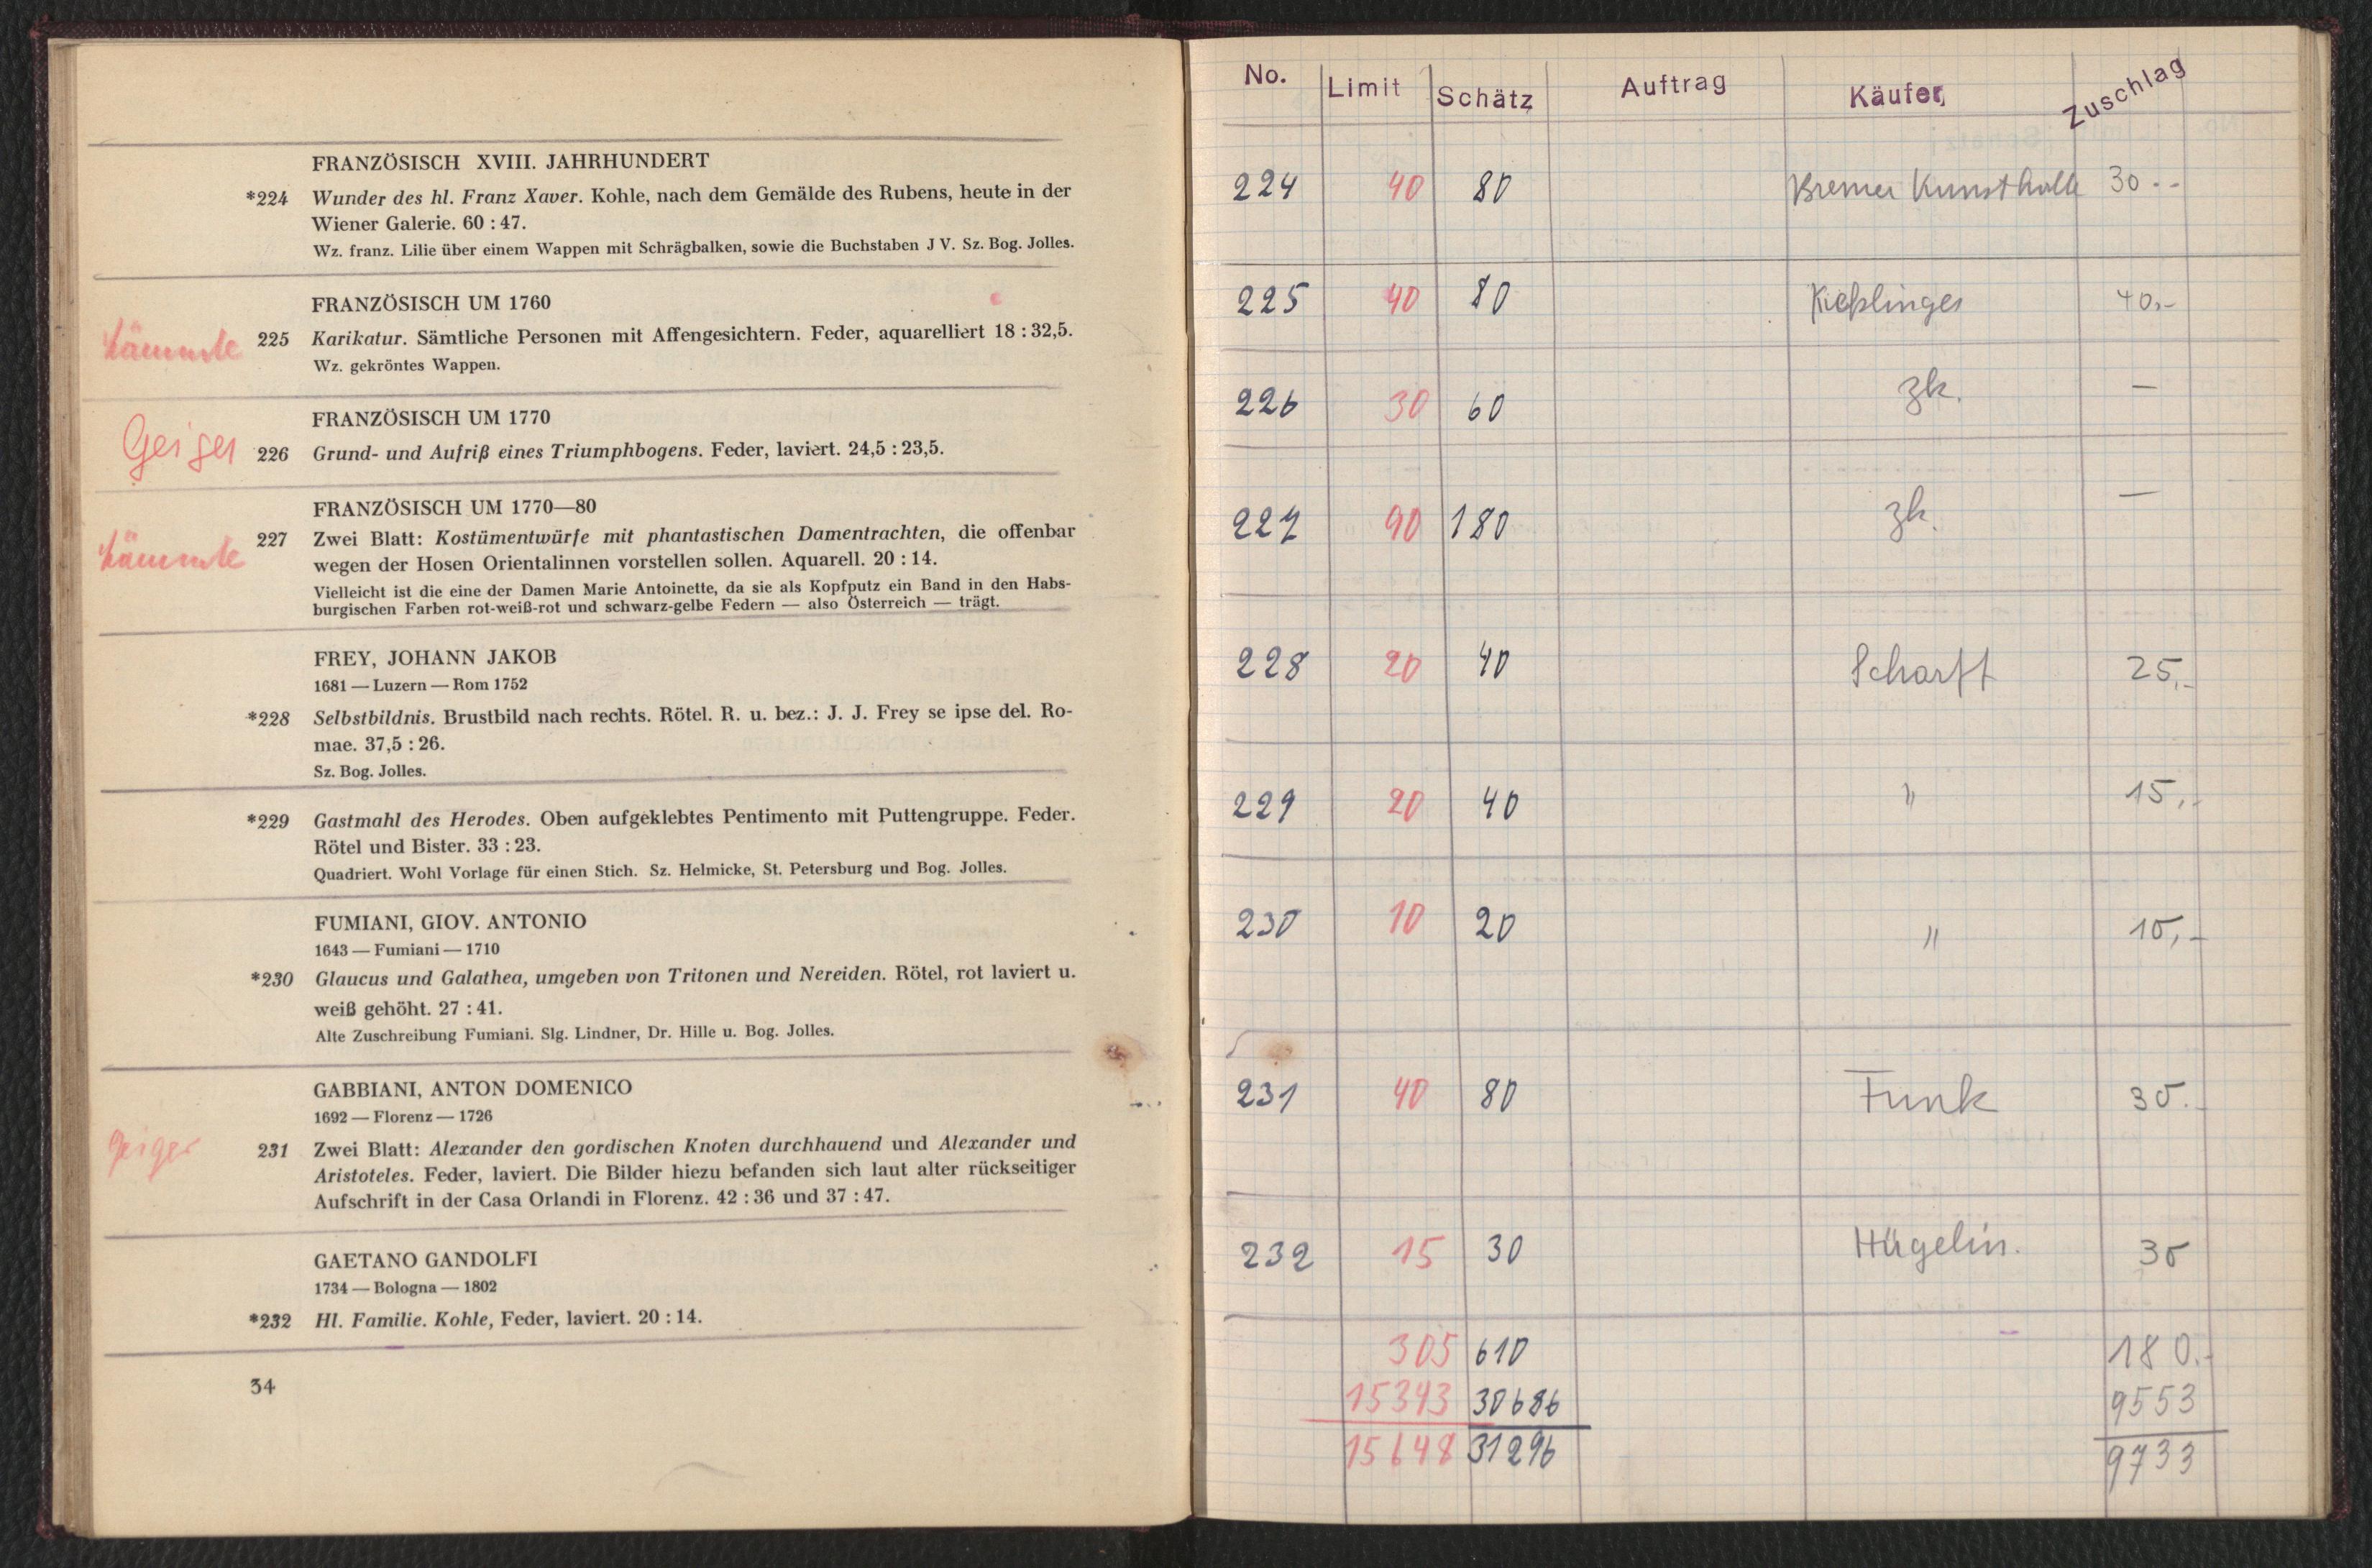 FRANZÖSISCH XVIII. JAHRHUNDERT
*224 Wunder des hl. Franz Xaver. Kohle, nach dem Gemälde des Rubens, heute in der
Wiener Galerie. 60 : 47.
Wz. franz. Lilie über einem Wappen mit Schrägbalken, sowie die Buchstaben J V. Sz. Bog. Jolles.
FRANZÖSISCH UM 1760
Lämmle 225 Karikatur. Sämtliche Personen mit Affengesichtern. Feder, aquarelliert 18 : 32,5.
Wz. gekröntes Wappen.
FRANZÖSISCH UM 1770
Geiger 226 Grund- und Aufriß eines Triumphbogens. Feder, laviert. 24,5 : 23,5.
FRANZÖSISCH UM 1770—80
Lämmle 227 Zwei Blatt: Kostümentwürfe mit phantastischen Damentrachten, die offenbar
wegen der Hosen Orientalinnen vorstellen sollen. Aquarell. 20 : 14.
Vielleicht ist die eine der Damen Marie Antoinette, da sie als Kopfputz ein Band in den Habs-
burgischen Farben rot-weiß-rot und schwarz-gelbe Federn — also Österreich — trägt.
FREY, JOHANN JAKOB
1681 — Luzern — Rom 1752
*228 Selbstbildnis. Brustbild nach rechts. Rötel. R. u. bez.: J. J. Frey se ipse del. Ro-
mae. 37,5 : 26.
Sz. Bog. Jolles.
*229 Gastmahl des Herodes. Oben aufgeklebtes Pentimento mit Puttengruppe. Feder.
Rötel und Bister. 33 : 23.
Quadriert. Wohl Vorlage für einen Stich. Sz. Helmicke, St. Petersburg und Bog. Jolles.
FUMIANI, GIOV. ANTONIO
1643 — Fumiani — 1710
*230 Glaucus und Galathea, umgeben von Tritonen und Nereiden. Rötel, rot laviert u.
weiß gehöht. 27 : 41.
Alte Zuschreibung Fumiani. Slg. Lindner, Dr. Hille u. Bog. Jolles.
GABBIANI, ANTON DOMENICO
1692 — Florenz — 1726
Geiger 231 Zwei Blatt: Alexander den gordischen Knoten durchhauend und Alexander und
Aristoteles. Feder, laviert. Die Bilder hiezu befanden sich laut alter rückseitiger
Aufschrift in der Casa Orlandi in Florenz. 42 : 36 und 37 : 47.
GAETANO GANDOLFI
1734 — Bologna — 1802
*232 Hl. Familie. Kohle, Feder, laviert. 20 : 14.
34
No. Limit Schätz Auftrag Käufer Zuschlag
224 40 80 Bremer Kunsthalle 30.-
225 40 80 Kießlinger 40,-
226 30 60 zk. —
227 90 180 zk. —
228 20 40 Scharff 25,-
229 20 40 " 15,-
230 10 20 " 10,-
231 40 80 Funk 30.-
232 15 30 Hügelin. 30
305 610 180.-
15343 30686 9553
15648 31296 9733